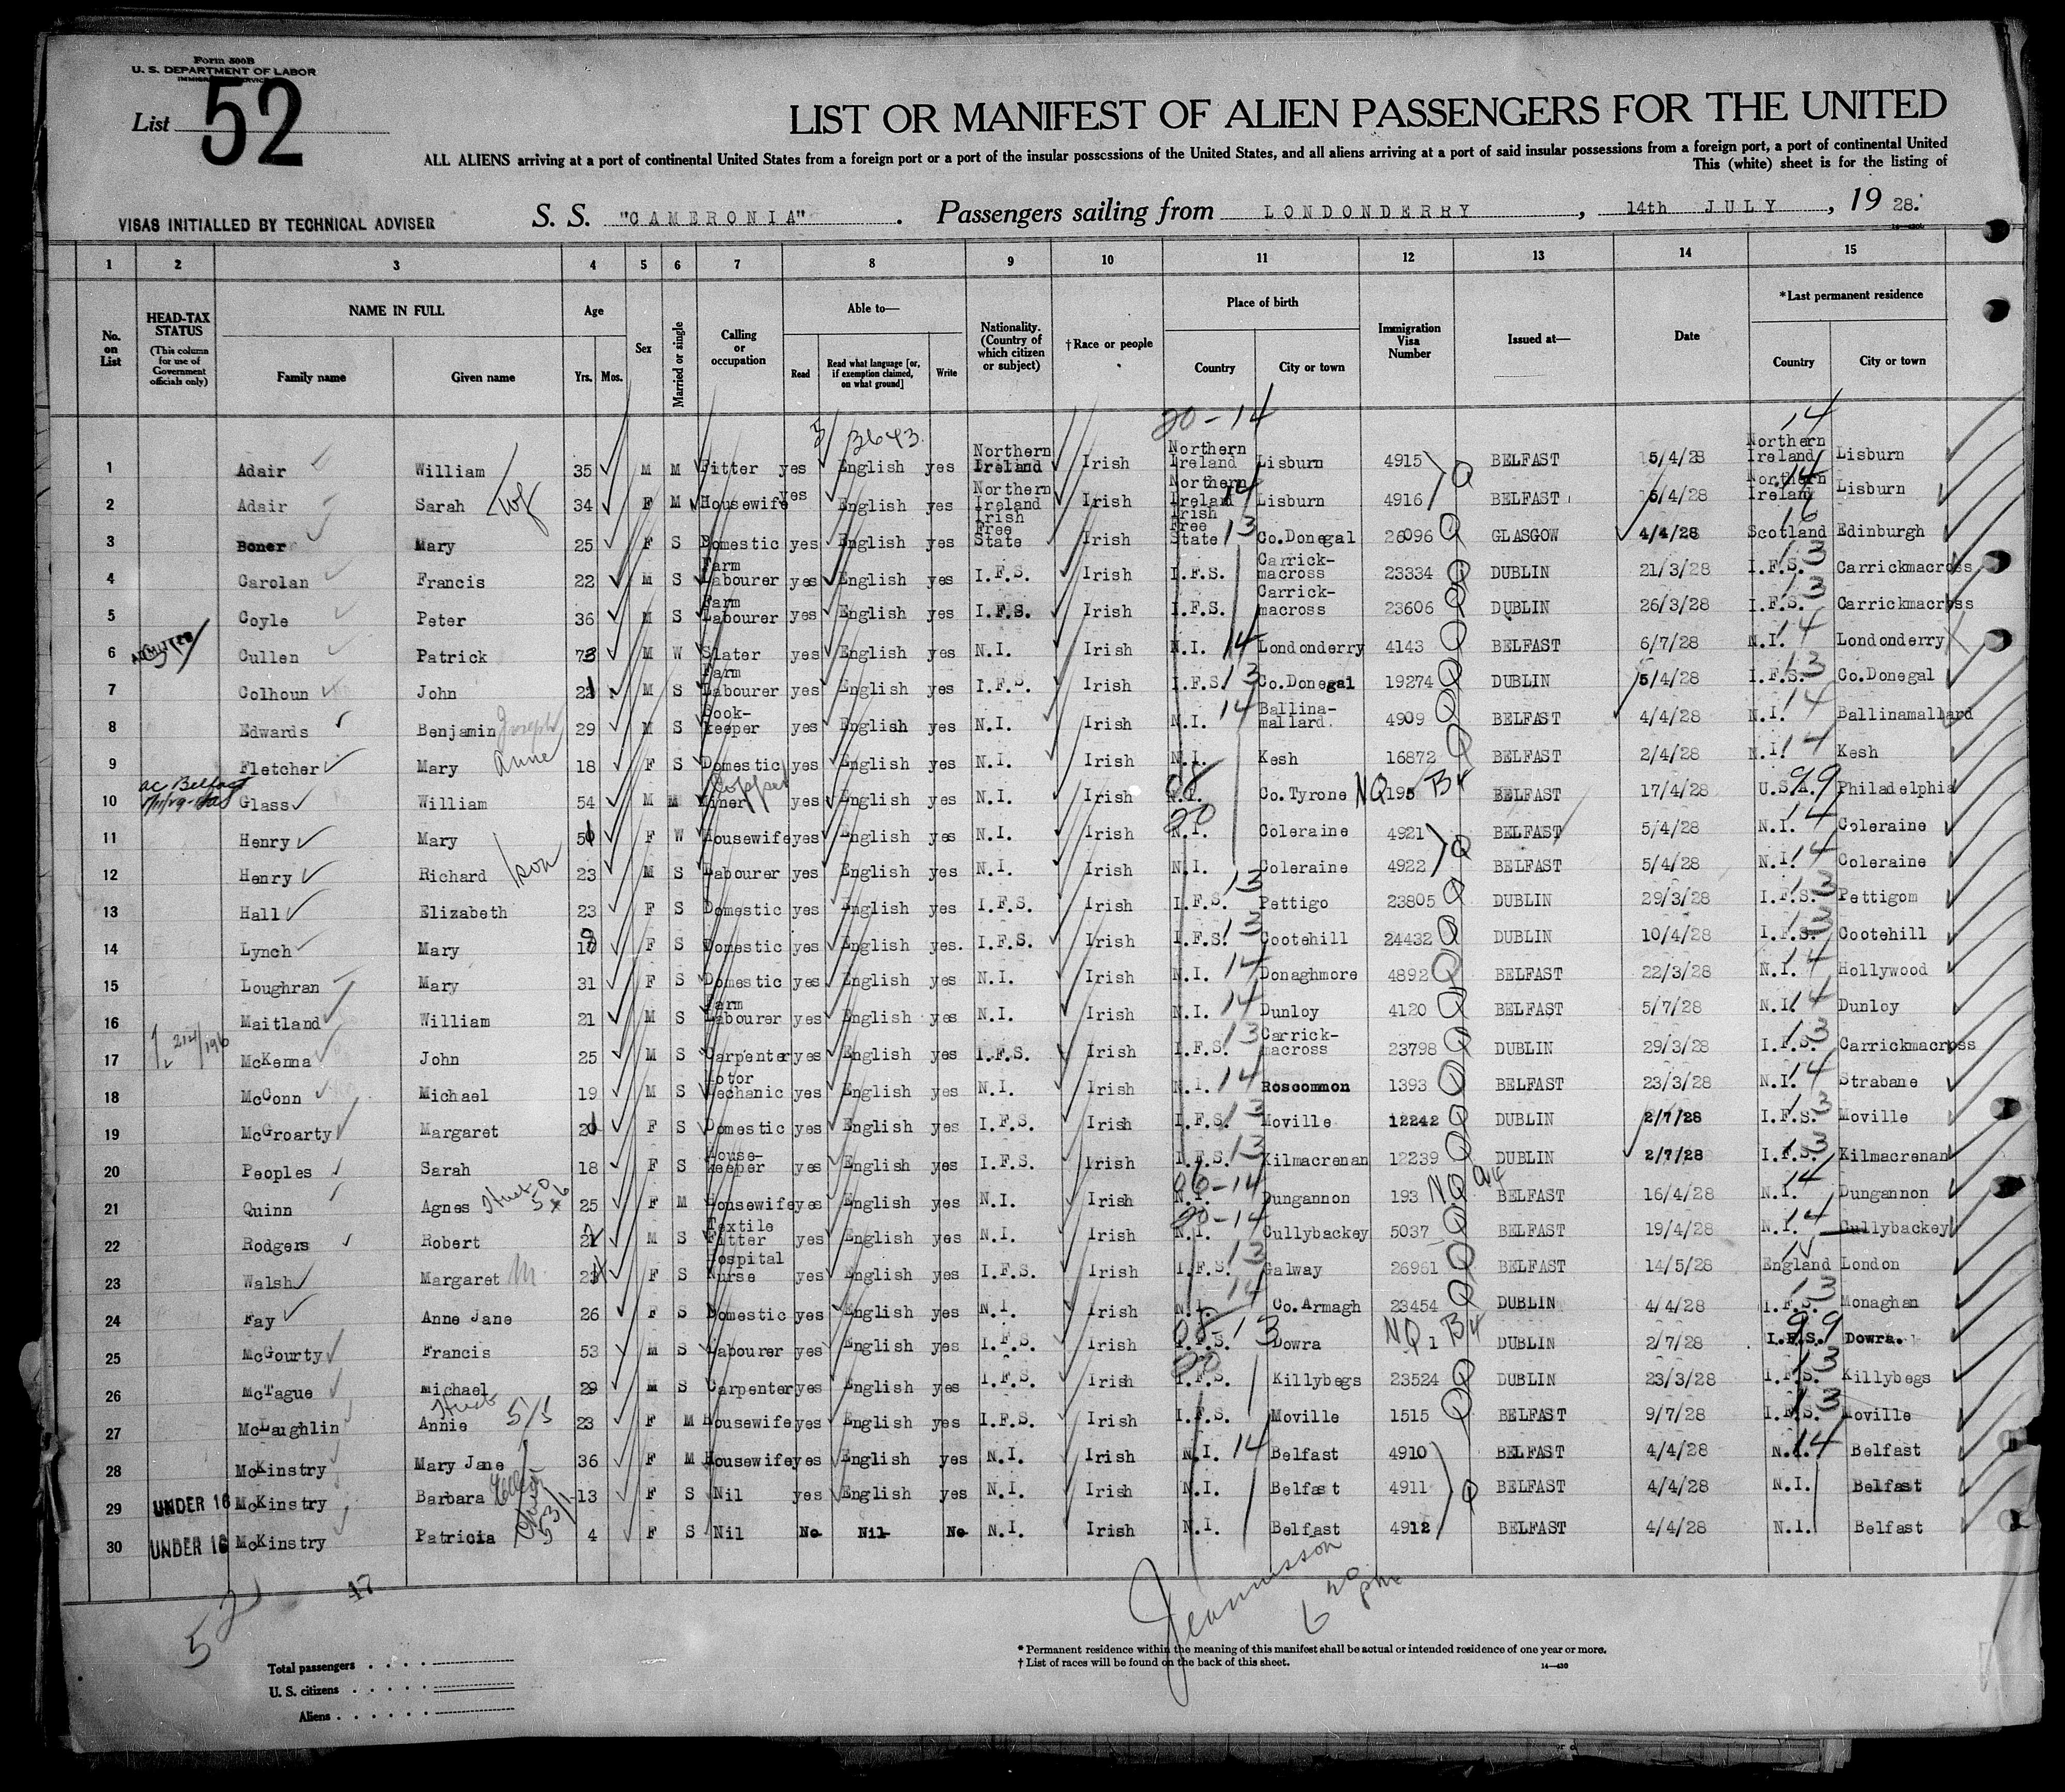 Form 500B
U. S. DEPARTMENT OF LABOR
IMMIGRATION SERVICE
List 52
LIST OR MANIFEST OF ALIEN PASSENGERS FOR THE UNITED
ALL ALIENS arriving at a port of continental United States from a foreign port or a port of the insular possessions of the United States, and all aliens arriving at a port of said insular possessions from a foreign port, a port of continental United
This (white) sheet is for the listing of
VISAS INITIALLED BY TECHNICAL ADVISER
S. S. "CAMERONIA". Passengers sailing from LONDONDERRY, 14th JULY, 19 28.
1 2 3 4 5 6 7 8 9 10 11 12 13 14 15
No. on List
HEAD-TAX STATUS (This column for use of Government officials only)
NAME IN FULL
Family name Given name
Age
Yrs. Mos.
Sex
Married or single
Calling or occupation
Able to—
Read Read what language [or, if exemption claimed, on what ground] Write
Nationality. (Country of which citizen or subject)
†Race or people
Place of birth
Country City or town
Immigration Visa Number
Issued at—
Date
*Last permanent residence
Country City or town
3643 20-14 14
1 Adair William 35 M M Fitter yes English yes Northern Ireland Irish Northern Ireland Lisburn 4915 BELFAST 5/4/28 Northern Ireland Lisburn
2 Adair Sarah wf 34 F M Housewife yes English yes Northern Ireland Irish Northern Ireland 14 Lisburn 4916 BELFAST 5/4/28 Northern Ireland 14 Lisburn
3 Boner Mary 25 F S Domestic yes English yes Irish Free State Irish Irish Free State 13 Co.Donegal 26096 Q GLASGOW 4/4/28 Scotland 16 Edinburgh
4 Carolan Francis 22 M S Farm Labourer yes English yes I.F.S. Irish I.F.S. Carrickmacross 23334 Q DUBLIN 21/3/28 I.F.S. 13 Carrickmacross
5 Coyle Peter 36 M S Farm Labourer yes English yes I.F.S. Irish I.F.S. Carrickmacross 23606 Q DUBLIN 26/3/28 I.F.S. 13 Carrickmacross
6 ADMITTED Cullen Patrick 73 M W Slater yes English yes N.I. Irish N.I. 14 Londonderry 4143 Q BELFAST 6/7/28 N.I. 14 Londonderry
7 Colhoun John M S Farm Labourer yes English yes I.F.S. Irish I.F.S. 13 Co.Donegal 19274 Q DUBLIN 5/4/28 I.F.S. 13 Co.Donegal
8 Edwards Benjamin Joseph 29 M S Book-keeper yes English yes N.I. Irish N.I. 14 Ballina-mallard. 4909 Q BELFAST 4/4/28 N.I. 14 Ballinamallard
9 Fletcher Mary Anne 18 F S Domestic yes English yes N.I. Irish N.I. Kesh 16872 Q BELFAST 2/4/28 N.I. 14 Kesh
10 Glass William 54 M M Copper Miner yes English yes N.I. Irish N.I. 08 Co.Tyrone NQ 195 B4 BELFAST 17/4/28 U.S.A. 99 Philadelphia
11 Henry Mary F W Housewife yes English yes N.I. Irish N.I. 20 Coleraine 4921 BELFAST 5/4/28 N.I. 14 Coleraine
12 Henry Richard son 23 M S Labourer yes English yes N.I. Irish N.I. Coleraine 4922 Q BELFAST 5/4/28 N.I. 14 Coleraine
13 Hall Elizabeth 23 F S Domestic yes English yes I.F.S. Irish I.F.S. 13 Pettigo 23805 Q DUBLIN 29/3/28 I.F.S. 13 Pettigom
14 Lynch Mary F S Domestic yes English yes. I.F.S. Irish I.F.S. 13 Cootehill 24432 Q DUBLIN 10/4/28 I.F.S. 13 Cootehill
15 Loughran Mary 31 F S Domestic yes English yes N.I. Irish N.I. 14 Donaghmore 4892 Q BELFAST 22/3/28 N.I. 14 Hollywood
16 Maitland William 21 M S Farm Labourer yes English yes N.I. Irish N.I. 14 Dunloy 4120 Q BELFAST 5/7/28 N.I. 14 Dunloy
17 McKenna John 25 M S Carpenter yes English yes I.F.S. Irish I.F.S. 13 Carrick-macross 23798 Q DUBLIN 29/3/28 I.F.S. 13 Carrickmacross
18 McConn Michael 19 M S Motor Mechanic yes English yes N.I. Irish N.I. 14 Roscommon 1393 Q BELFAST 23/3/28 N.I. 14 Strabane
19 McGroarty Margaret F S Domestic yes English yes I.F.S. Irish I.F.S. 13 Moville 12242 Q DUBLIN 2/7/28 I.F.S. 13 Moville
20 Peoples Sarah 18 F S House-keeper yes English yes I.F.S. Irish I.F.S. 13 Kilmacrenan 12239 Q DUBLIN 2/7/28 I.F.S. 13 Kilmacrenan
21 Quinn Agnes 25 F M Housewife yes English yes N.I. Irish N.I. 06-14 Dungannon 193 NQ BELFAST 16/4/28 N.I. 14 Dungannon
22 Rodgers Robert M S Textile Fitter yes English yes N.I. Irish N.I. 20-14 Cullybackey 5037 Q BELFAST 19/4/28 N.I. 14 Cullybackey
23 Walsh Margaret M. F S Hospital Nurse yes English yes I.F.S. Irish I.F.S. 13 Galway 26961 Q BELFAST 14/5/28 England London
24 Fay Anne Jane 26 F S Domestic yes English yes N.I. Irish N.I. 14 Co.Armagh 23454 Q DUBLIN 4/4/28 I.F.S. 13 Monaghan
25 McGourty Francis 53 M S Labourer yes English yes I.F.S. Irish I.F.S. 08 13 Dowra NQ 1 B4 DUBLIN 2/7/28 I.F.S. 99 Dowra.
26 McTague Michael 29 M S Carpenter yes English yes I.F.S. Irish I.F.S. 20 Killybegs 23524 Q DUBLIN 23/3/28 I.F.S. 13 Killybegs
27 McLaughlin Annie 23 F M Housewife yes English yes I.F.S. Irish I.F.S. Moville 1515 Q BELFAST 9/7/28 I.F.S. 13 Moville
28 McKinstry Mary Jane 36 F M Housewife yes English yes N.I. Irish N.I. 14 Belfast 4910 BELFAST 4/4/28 N.I. 14 Belfast
29 UNDER 16 McKinstry Barbara 13 F S Nil yes English yes N.I. Irish N.I. Belfast 4911 Q BELFAST 4/4/28 N.I. Belfast
30 UNDER 16 McKinstry Patricia 4 F S Nil No Nil No N.I. Irish N.I. Belfast 4912 BELFAST 4/4/28 N.I. Belfast
52 17
Total passengers
U. S. citizens
Aliens
* Permanent residence within the meaning of this manifest shall be actual or intended residence of one year or more.
† List of races will be found on the back of this sheet.
14—430